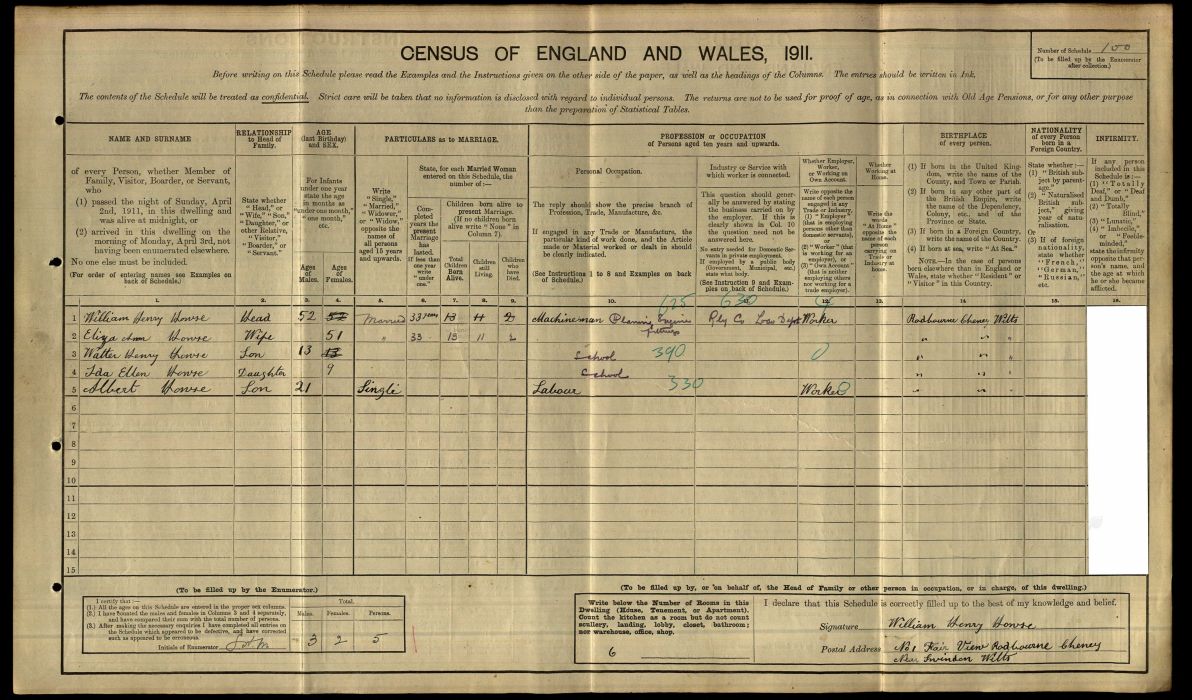 CENSUS OF ENGLAND AND WALES, 1911.
Number of Schedule 100
(To be filled up by the Enumerator
after collection.)
Before writing on this Schedule please read the Examples and the Instructions given on the other side of the paper, as well as the headings of the Columns. The entries should be written in Ink.
The contents of the Schedule will be treated as confidential. Strict care will be taken that no information is disclosed with regard to individual persons. The returns are not to be used for proof of age, as in connection with Old Age Pensions, or for any other purpose
than the preparation of Statistical Tables.
NAME AND SURNAME
of every Person, whether Member of
Family, Visitor, Boarder, or Servant,
who
(1) passed the night of Sunday, April
2nd, 1911, in this dwelling and
was alive at midnight, or
(2) arrived in this dwelling on the
morning of Monday, April 3rd, not
having been enumerated elsewhere.
No one else must be included.
(For order of entering names see Examples on
back of Schedule.)
RELATIONSHIP
to Head of
Family.
State whether
"Head," or
"Wife," "Son,"
"Daughter," or
other Relative,
"Visitor,"
"Boarder," or
"Servant."
AGE
(last Birthday)
and SEX.
For Infants
under one year
state the age
in months as
"under one month,"
"one month,"
etc.
Ages
of
Males.
Ages
of
Females.
PARTICULARS as to MARRIAGE.
Write
"Single,"
"Married,"
"Widower,"
or "Widow,"
opposite the
names of
all persons
aged 15 years
and upwards.
State, for each Married Woman
entered on this Schedule, the
number of:—
Com-
pleted
years the
present
Marriage
has
lasted.
If less than
one year
write
"under
one."
Children born alive to
present Marriage.
(If no children born
alive write "None" in
Column 7).
Total
Children
Born
Alive.
Children
still
Living.
Children
who
have
Died.
PROFESSION or OCCUPATION
of Persons aged ten years and upwards.
Personal Occupation.
The reply should show the precise branch of
Profession, Trade, Manufacture, &c.
If engaged in any Trade or Manufacture, the
particular kind of work done, and the Article
made or Material worked or dealt in should
be clearly indicated.
(See Instructions 1 to 8 and Examples on back
of Schedule.)
Industry or Service with
which worker is connected.
This question should gener-
ally be answered by stating
the business carried on by
the employer. If this is
clearly shown in Col. 10
the question need not be
answered here.
No entry needed for Domestic Ser-
vants in private employment.
If employed by a public body
(Government, Municipal, etc.)
state what body.
(See Instruction 9 and Exam-
ples on back of Schedule.)
Whether Employer,
Worker,
or Working on
Own Account.
Write opposite the
name of each person
engaged in any
Trade or Industry,
(1) "Employer"
(that is employing
persons other than
domestic servants),
or
(2) "Worker" (that
is working for an
employer), or
(3) "Own Account"
(that is neither
employing others
nor working for a
trade employer).
Whether
Working at
Home.
Write the
words
"At Home"
opposite the
name of each
person
carrying on
Trade or
Industry at
home.
BIRTHPLACE
of every person.
(1) If born in the United King-
dom, write the name of the
County, and Town or Parish.
(2) If born in any other part of
the British Empire, write
the name of the Dependency,
Colony, etc., and of the
Province or State.
(3) If born in a Foreign Country,
write the name of the Country.
(4) If born at sea, write "At Sea."
NOTE.—In the case of persons
born elsewhere than in England or
Wales, state whether "Resident" or
"Visitor" in this Country.
NATIONALITY
of every Person
born in a
Foreign Country.
State whether:—
(1) "British sub-
ject by parent-
age,"
(2) "Naturalised
British sub-
ject," giving
year of natu-
ralisation.
Or
(3) If of foreign
nationality,
state whether
"French,"
"German,"
"Russian,"
etc.
INFIRMITY.
If any person
included in this
Schedule is:—
(1) "Totally
Deaf," or "Deaf
and Dumb,"
(2) "Totally
Blind,"
(3) "Lunatic,"
(4) "Imbecile,"
or "Feeble-
minded,"
state the infirmity
opposite that per-
son's name, and
the age at which
he or she became
afflicted.
1. 2. 3. 4. 5. 6. 7. 8. 9. 10. 11. 12. 13. 14. 15. 16.
125 630
1 William Henry Howse Head 52 52 Married 33 years 13 11 2 Machineman Planing Engine fittings Rly Co Loco Dept Worker Rodbourne Cheney Wilts
2 Eliza Ann Howse Wife 51 " 33 13 11 2 " " "
3 Walter Henry Howse Son 13 13 School 390 0 " " "
4 Ida Ellen Howse Daughter 9 School " " "
5 Albert Howse Son 21 Single Labour 330 Worker 0 " " "
6
7
8
9
10
11
12
13
14
15
(To be filled up by the Enumerator.)
I certify that:—
(1.) All the ages on this Schedule are entered in the proper sex columns.
(2.) I have counted the males and females in Columns 3 and 4 separately,
and have compared their sum with the total number of persons.
(3.) After making the necessary enquiries I have completed all entries on
the Schedule which appeared to be defective, and have corrected
such as appeared to be erroneous.
Initials of Enumerator
Total.
Males. Females. Persons.
3 2 5
(To be filled up by, or on behalf of, the Head of Family or other person in occupation, or in charge, of this dwelling.)
Write below the Number of Rooms in this
Dwelling (House, Tenement, or Apartment).
Count the kitchen as a room but do not count
scullery, landing, lobby, closet, bathroom;
nor warehouse, office, shop.
6
I declare that this Schedule is correctly filled up to the best of my knowledge and belief.
Signature William Henry Howse
Postal Address No 1 Fair View Rodbourne Cheney
Near Swindon Wilts